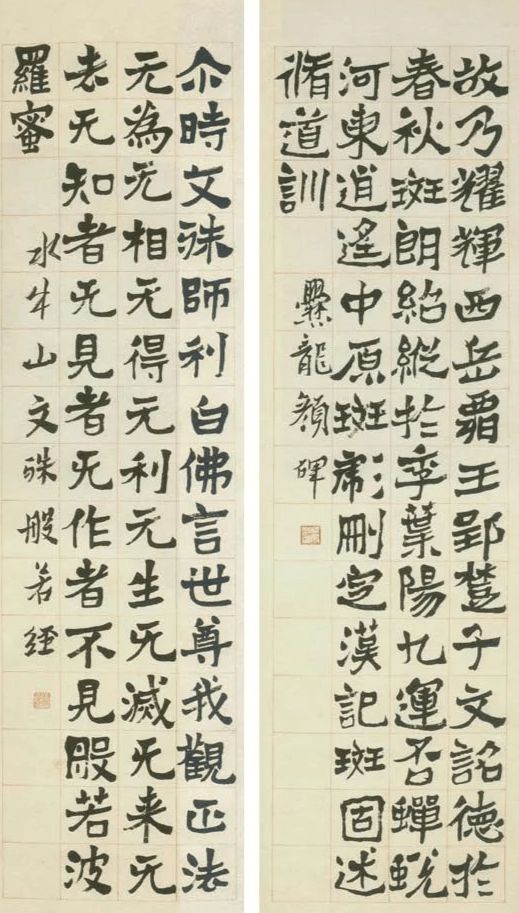 故乃耀輝西岳霸王郢楚子文詺德於
春秋斑朗紹縱於季葉陽九運否蟬蛻
河東逍遙中原斑彪刪定漢記斑固述
脩道訓
爨龍顏碑
尒時文殊師利白佛言世尊我觀正法
无為无相无得无利无生无滅无来无
去无知者无見者无作者不見般若波
羅蜜
水牛山文殊般若經